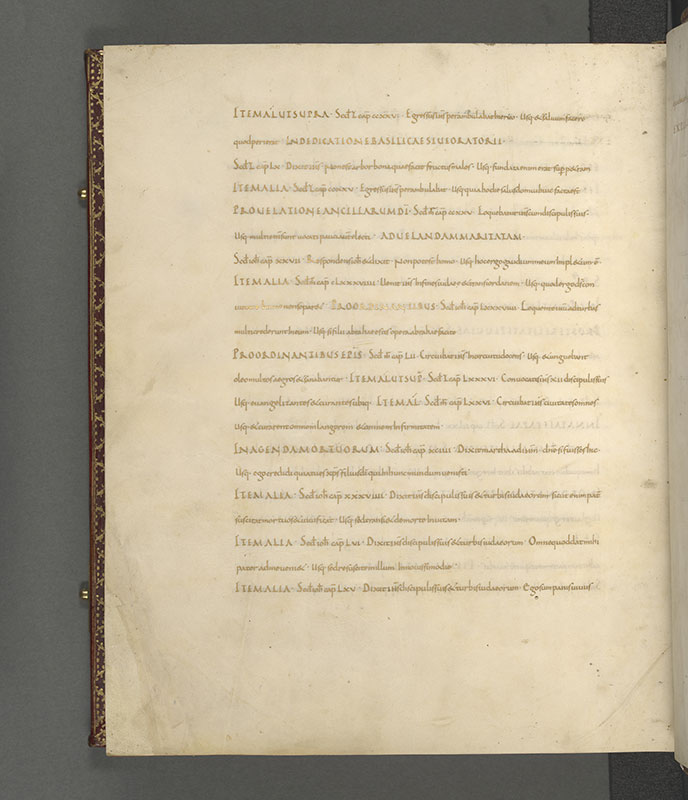 ITEM AL UT SUPRA · Scd L cap ccxxvi · Egressus ihs perambulabat hiericho · Usq & saluum facere
quod perierat · IN DEDICATIONE BASILICAE SIUE ORATORII
Scd L cap Lx · Dixit ihs · Non est arbor bona quae facit fructus malos · Usq fundata enim erat sup petram
ITEM ALIA · Scd L cap ccxxv · Egressus ihs perambulabat · Usq quia hodie salus domui huic facta est
PRO UELATIONE ANCILLARUM DI · Scd cap ccxxv · Loquebatur ihs cum discipulis suis ·
Usq multi enim sunt uocati pauci uero electi · AD UELANDAM MARITATAM
Scd ioh cap xxvii · Respondens ioh & dixit · Non potest homo · Usq hoc ergo gaudium meum impletum e
ITEM ALIA · Scd cap cLxxxviiii · Uenit ihs in fines iudaeae trans iordanen · Usq quod ergo ds con
homo non separ& · PRO ORDINANTIBUS · Scd ioh cap Lxxxviiii · Loquente ihu ad turbis
multi crediderunt in eum · Usq si filii abrahae estis opera abrahae facite
PRO ORDINANTIBUS EPIS · Scd cap Lii · Circuibat ihs in circuitu docens · Usq & unguebant
oleo multos aegros & sanabantur · ITEM AL UT SUP · Scd L cap Lxxxvi · Conuocatis ihs xii discipulis suis
Usq euangelizantes & curantes ubiq · ITEM AL · Scd cap Lxxvi · Circuibat ihs ciuitates omnes
Usq & curarent omnem languorem & omnem infirmitatem
IN AGENDA MORTUORUM · Scd ioh cap · Dixit martha ad ihm · dne si fuisses hic
Usq ego credidi quia tu es xps filius di qui in hunc mundum uenisti
ITEM ALIA · Scd ioh cap xxxviiii · Dixit ihs discipulis suis & turbis iudaeorum · Sicut enim pater
suscitat mortuos & uiuificat · Usq sed transi& de morte in uitam ·
ITEM ALIA · Scd ioh cap Lvi · Dixit ihs discipulis suis & turbis iudaeorum · Omne quod dat mihi
pater ad me ueni& · Usq sed resuscitem illum in nouissimo die
ITEM ALIA · Scd ioh cap Lxv · Dixit ihs discipulis suis & turbis iudaeorum · Ego sum panis uiuus